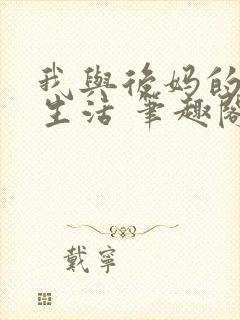 我與後妈的
生活 筆趣閣
戴寧